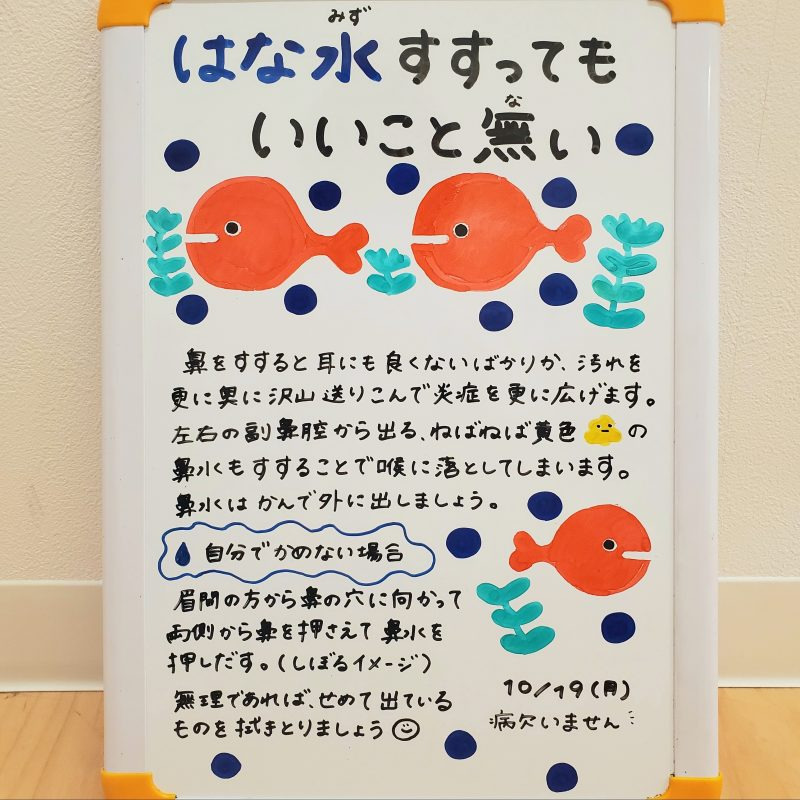 はな水すすっても
いいこと無い
鼻をすすると耳にも良くないばかりか、汚れを
更に奥に沢山送りこんで炎症を更に広げます。
左右の副鼻腔から出る、ねばねば黄色の
鼻水もすすることで喉に落としてしまいます。
鼻水はかんで外に出しましょう。
自分でかめない場合
眉間の方から鼻の穴に向かって
両側から鼻を押さえて鼻水を
押しだす。(しぼるイメージ)
無理であれば、せめて出ている
ものを拭きとりましょう
10/19(月)
病欠いません